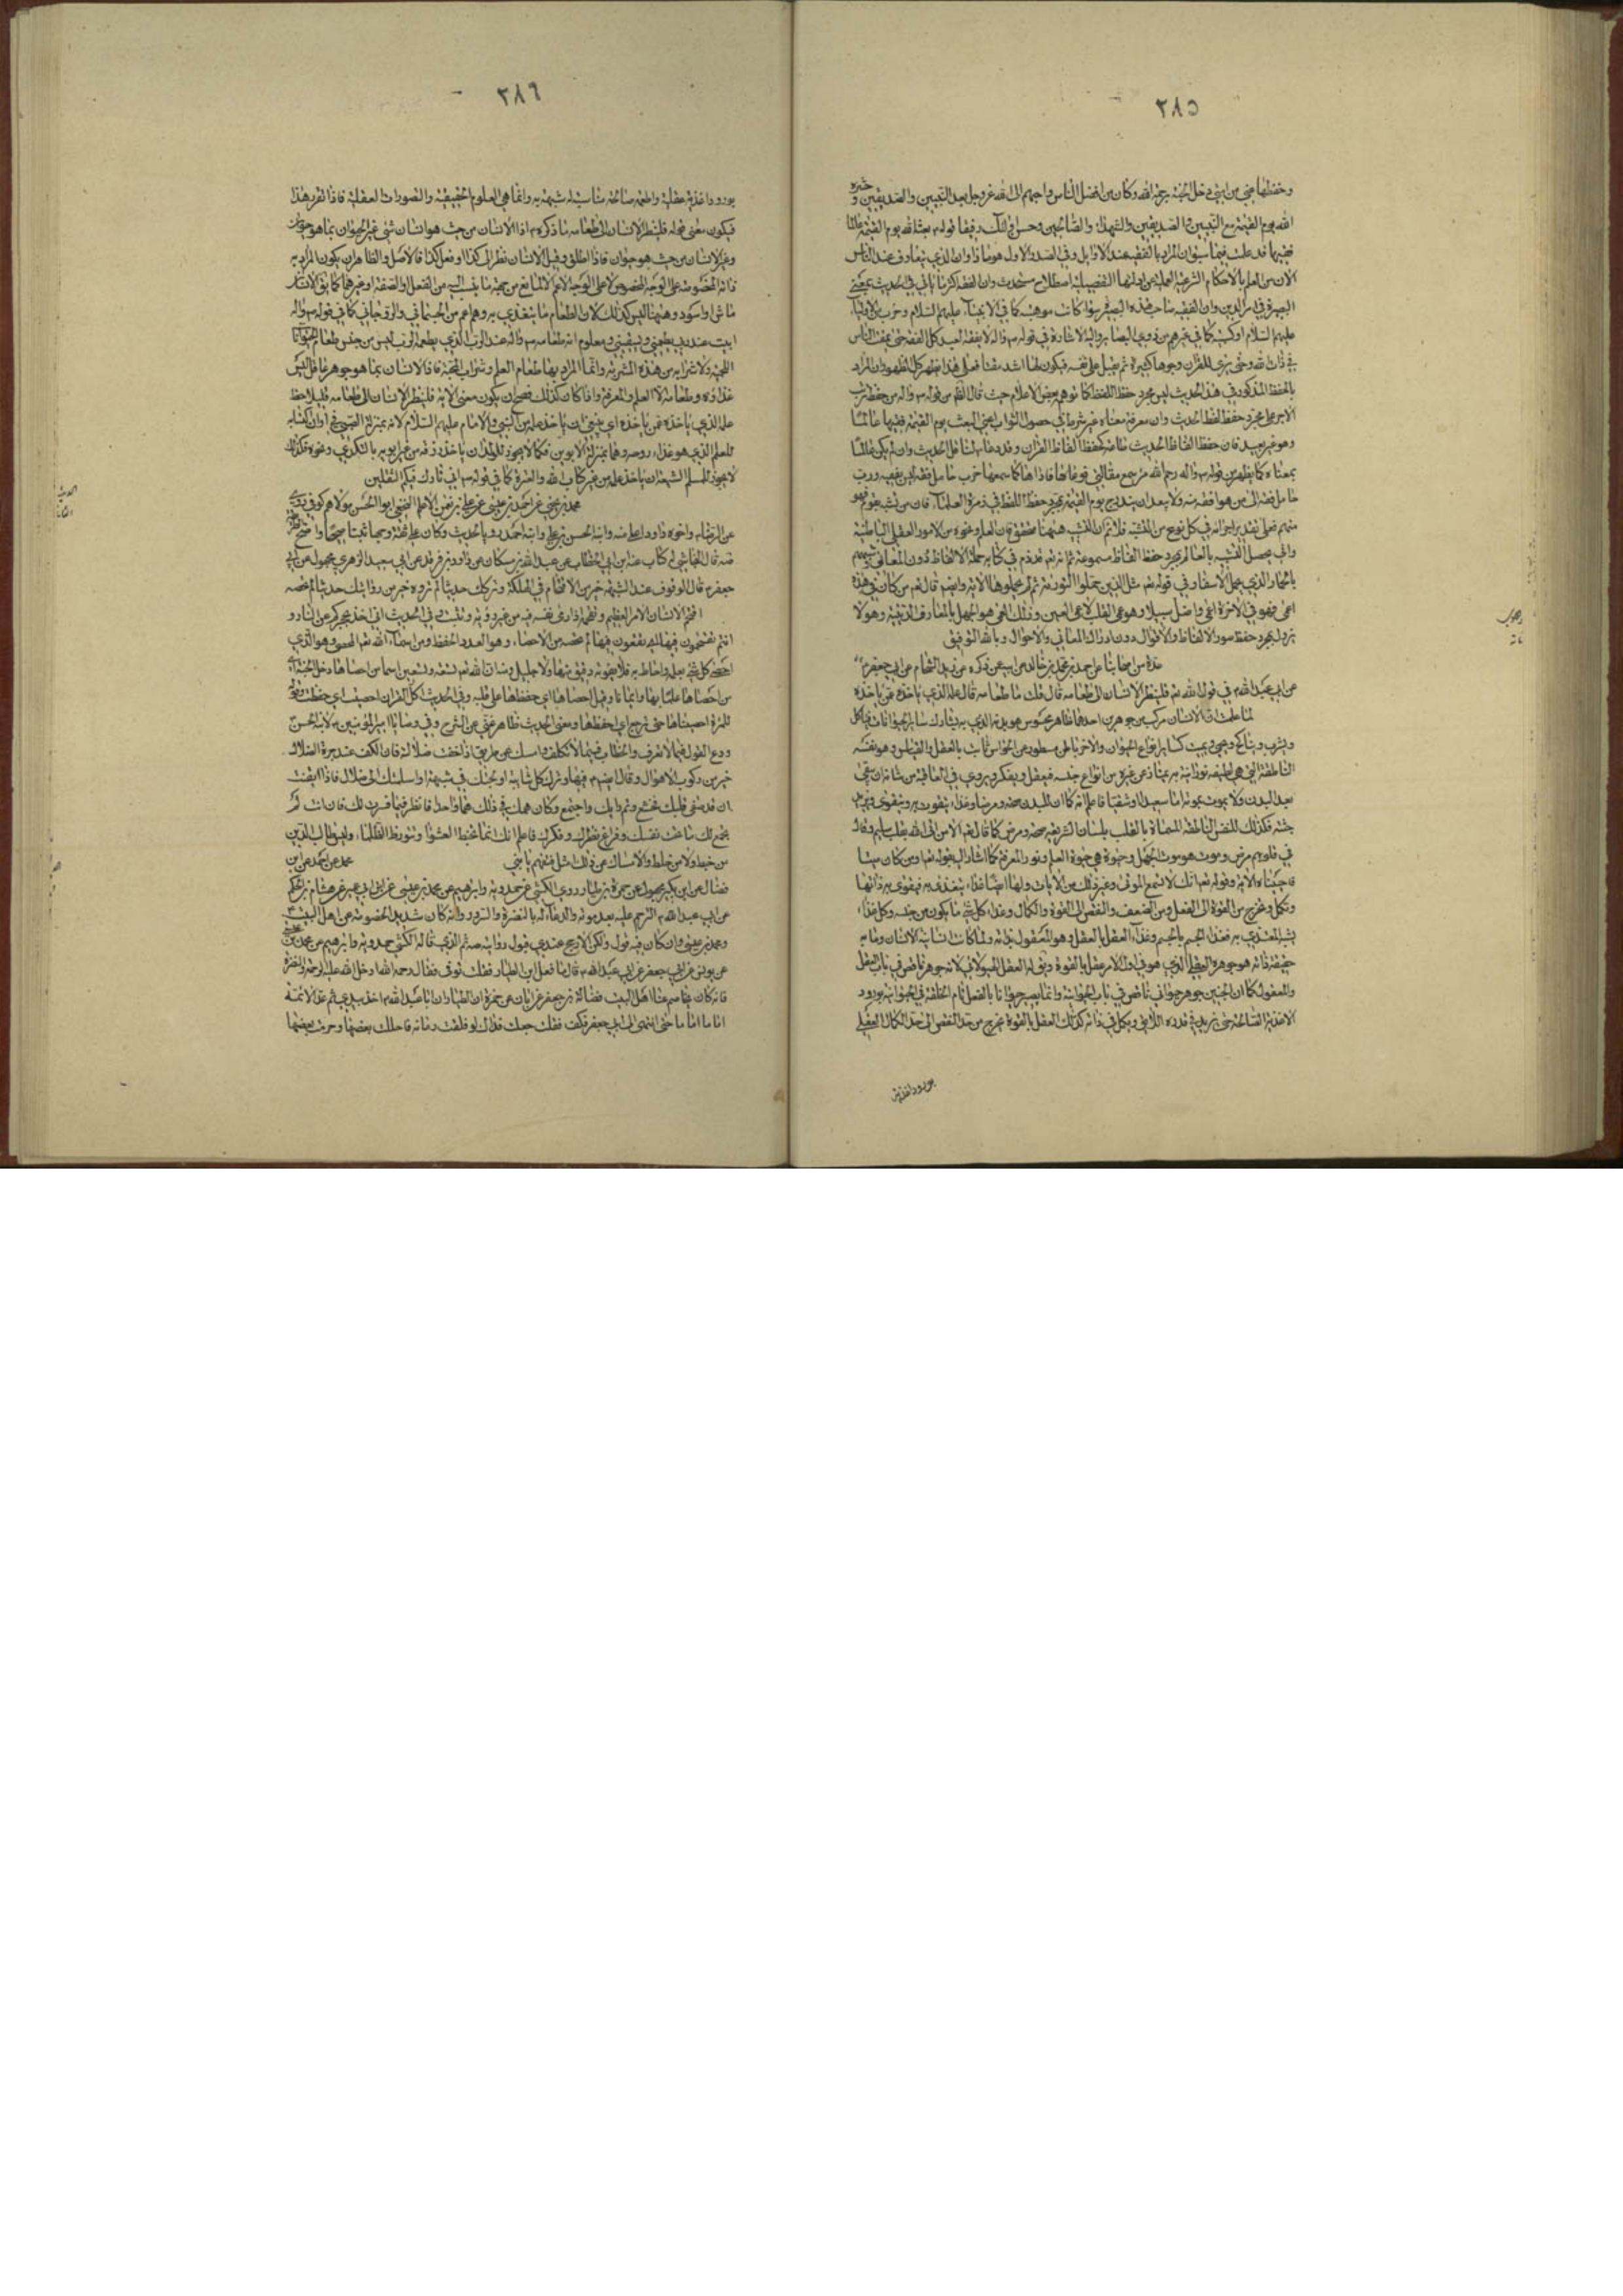 ٢٨٥
وحفظها عني من امتي دخل الجنة برحمة الله وكان من افضل الناس واحبهم الى الله عز وجل بعد النبيين والصديقين وحشره
الله يوم القيمة مع النبيين والصديقين والشهداء والصالحين وحسن اولئك رفيقا قوله بعثه الله يوم القيمة عالما
فقيها قد علمت فيما سبق ان المراد بالفقيه عند الاوايل وفي الصدر الاول هو ماذا وان الذي يتعارف عند الناس
الان من العلم بالاحكام الشرعية العملية عن ادلتها التفصيلية اصطلاح مستحدث وان الفقه اكثر ما ياتي في الحديث بمعنى
البصيرة في امر الدين وان الفقيه صاحب هذه البصيرة سواء كانت موهبية كما في الانبياء عليهم السلام
عليهم السلام او كسبية كما في غيرهم من ذوي البصاير واليه الاشارة في قوله ص واله لا يفقه العبد كل الفقه حتى يمقت الناس
في ذات الله وحتى يرى للقران وجوها كثيرة ثم يقبل على نفسه فيكون لها اشد مقتا فعلى هذا يظهر كل الظهور ان المراد
بالحفظ المذكور في هذا الحديث ليس مجرد حفظ اللفظ كما توهمه بعض الاعلام حيث قال الظاهر من قوله ص واله من حفظ ترتب
الاجر على مجرد حفظ لفظ الحديث وان معرفة معناه غير شرط في حصول الثواب اعني البعث يوم القيمة فقيها عالما
وهو غير بعيد فان حفظ الفاظ الحديث طاعة كحفظ الفاظ القران وقد دعا ص لناقل الحديث وان لم يكن عالما
بمعناه كما يظهر من قوله ص واله رحم الله من سمع مقالتي فوعاها فاداها كما سمعها فرب حامل فقه ليس بفقيه ورب
حامل فقه الى من هو افقه منه ولا يبعد ان يندرج يوم القيمة بمجرد حفظ اللفظ في زمرة العلماء فان من تشبه بقوم فهو
منهم فعلى تقدير اجرائه في كل نوع من التشبه فلا نم ان التشبه ههنا متحقق فان العلم ونحوه من الامور العقلية الباطنية
واني يحصل التشبه بالعالم بمجرد حفظ الفاظ مسموعة ثم انه تعالى قد ذم في كتابه حملة الالفاظ دون المعاني وشبههم
بالحمار الذي يحمل الاسفار في قوله تع مثل الذين حملوا التورية ثم لم يحملوها الاية وايضا قال تع من كان في هذه
اعمى فهو في الاخرة اعمى واضل سبيلا وهو عمى القلب لا عمى العين وذلك العمى هو الجهل بالمعارف الدينية وهو لا
يزول بمجرد حفظ صور الالفاظ والاقوال دون ادراك المعاني والاحوال وبالله التوفيق
عدة من اصحابنا عن احمد بن محمد بن خالد عن ابيه عمن ذكره عن زيد الشحام عن ابي جعفر
في قول الله تع فلينظر الانسان الى طعامه قال قلت ما طعامه قال علمه الذي ياخذه عمن ياخذه
لما علمت ان الانسان مركب من جوهرين احدهما ظاهر محسوس هو بدنه الذي به يشارك ساير الحيوانات
ويحيى ويموت كساير انواع الحيوان والاخر باطن مستور عن الحواس ثابت بالعقل والقياس وهو نفسه
الناطقة التي هي لطيفة نورانية به يمتاز عن غيره من انواع جنسه فيعقل ويفكر ويروي في العاقبة من شانه ان يبقى
بعد البدن ولا يموت بموته اما سعيدا او شقيا فاعلم انه كما ان للبدن صحة ومرضا وغذاء يتقوت به ويتقوى
جثته فكذلك للنفس الناطقة المسماة بالقلب بلسان الشريعة صحة ومرض كما قال تع الا من اتى الله بقلب سليم وقال
في قلوبهم مرض وموت هو موت الجهل وحيوة هي حيوة العلم ونور المعرفة كما اشار اليه بقوله تعا او من كان ميتا
فاحييناه الاية وقوله تع انك لا تسمع الموتى وغير ذلك من الايات ولها ايضا غذاء يتغذى به فيقوى به ذاتها
وتكمل وتخرج من القوة الى الفعل ومن الضعف والنقص الى القوة والكمال وغذاء كل شي ما يكون من جنسه
يشبه المغتذي به فغذاء الجسم بالجسم وغذاء العقل بالعقل وهو المعقول بذاته ولما كانت انسانية الانسان وما به
حقيقة ذاته هو جوهره العقلي الذي هو في اول الامر عقل بالقوة ويقال له العقل الهيولاني لانه جوهر ناقص في باب العقل
والمعقول كما ان الجنين جوهر حيواني ناقص في باب الحيوانية وانما يصير حيوانا بالفعل تام الخلقة في الحيوانية بورود
الاغذية الصالحة حتى يزيد في قدره اللايق ويكمل في ذاته كذلك العقل بالقوة يخرج من حد النقص الى حد الكمال العقلي
بورود اغذية
٢٨٦
بورود اغذية عقلية واطعمة صالحة مناسبة له شبيهة به وانما هي العلوم الحقيقية والتصورات العقلية فاذا تقرر هذا
فيكون معنى قوله فلينظر الانسان الى طعامه ما ذكره ع اذ الانسان من حيث هو انسان شئ غير الحيوان بما هو حيوان
وغير الانسان من حيث هو حيوان فاذا اطلق وقيل الانسان نظر الى كذا او فعل كذا فالاصل والظاهر ان يكون المراد به
ذاته المخصوصة على الوجه المخصوص لا على الوجه الاعم الا لمانع من جهة ما ينسب اليه من الفعل او الصفة او غيرهما كما يقال الانسان
ماش او اسود وههنا ليس كذلك لان الطعام ما يتغذى به وهو اعم من الجسماني والروحاني كما في قوله ص واله
ابيت عند ربي يطعمني ويسقيني ومعلوم ان طعامه ص واله عند الرب الذي يطعمه الرب ليس من جنس طعام الحيوانات
اللحمية ولا شرابه من هذه الاشربة وانما المراد بهما طعام العلم وشراب المحبة فاذا الانسان بما هو جوهر عاقل ليس
غذاؤه وطعامه الا العلم والمعرفة واذا كان كذلك فصح ان يكون معنى الاية فلينظر الانسان الى طعامه فليلاحظ
علمه الذي ياخذه عمن ياخذه اي ينبغي ان ياخذ علمه من النبي والامام عليهم السلام لانه بمنزلة الصبي في اوان اكتسابه
للعلم الذي هو غذاء روحه وهما بمنزلة الابوين فكما لا يجوز للولد ان ياخذ رزقه من غير ابويه بالتكدي ونحوه فكذلك
لا يجوز للمسلم المتشبه ان ياخذ علمه من غير كتاب الله والعترة كما في قوله ص اني تارك فيكم الثقلين
محمد بن يحيى عن احمد بن محمد بن عيسى عن علي بن نعمان الاعلم النخعي ابو الحسن مولاهم كوفي روى
عن الرضا ع واخوه داود اعلى منه وابنه الحسن بن علي وابنه احمد رويا الحديث وكان علي ثقة وجها ثبتا صحيحا واضح الطريقة
صه قال النجاشي له كتاب عنه ابن ابي الخطاب عن عبد الله بن مسكان عن داود بن فرقد عن ابي سعيد الزهري مجهول عن ابي
جعفر ع قال الوقوف عند الشبهة خير من الاقتحام في الهلكة وتركك حديثا لم تروه خير من روايتك حديثا لم تحصه
اقتحم الانسان الامر العظيم وتقحمه اذا رمى نفسه فيه من غير روية وتثبت وفي الحديث اني اخذ بحجزكم عن النار و
انتم تقتحمون فيها اي تقعون فيها لم تحصه من الاحصاء وهو العد والحفظ ومن اسماء الله تع المحصي وهو الذي
احصى كل شئ بعلمه واحاط به فلا يفوته دقيق منها ولا جليل وان لله تع تسعة وتسعين اسما من احصاها دخل الجنة اي
من احصاها علما بها وايمانا وقيل احصاها اي حفظها على قلبه وفي الحديث اكل القران احصيت اي حفظت
للمرأة احصيناها حتى نرجع اي احفظها ومعنى الحديث ظاهر غني عن الشرح وفي وصايا امير المؤمنين ع لابنه الحسن
ودع القول فيما لا تعرف والخطاب فيما لا تكلف وامسك عن طريق اذا خفت ضلالته فان الكف عند حيرة الضلال
خير من ركوب الاهوال وقال ايضا ع فيها وترك كل شايبة اولجتك في شبهة او اسلمتك الى ضلال فاذا ايقنت
ان قد صفي قلبك فخشع وتم رايك واجتمع وكان همك في ذلك هما واحدا فانظر فيما فسرت لك فان انت لم
يجتمع لك ما تحب من نفسك وفراغ نظرك وفكرك فاعلم انك انما تخبط العشواء وتتورط الظلماء وليس طالب الدين
من خبط ولا من خلط والامساك عن ذلك امثل فتفهم يا بني محمد عن احمد عن ابن
فضال عن ابن بكير مجهول عن حمزة بن الطيار روى الكشي عن حمدويه وابراهيم عن محمد بن عيسى عن ابن ابي عمير عن هشام بن الحكم
عن ابي عبد الله ع الترحم عليه بعد موته والدعاء له بالنضرة والسرور وانه كان شديد الخصومة عن اهل البيت ع
ومحمد بن عيسى وان كان فيه قول ولكن الارجح عندي قبول روايته صه الذي قاله الكشي حمدويه وابراهيم عن محمد بن عيسى
عن يونس عن ابي جعفر عن ابي عبد الله ع قال ما فعل ابن الطيار فقلت توفى فقال رحمه الله ادخل الله عليه الرحمة والنضرة
فانه كان يخاصم عنا اهل البيت فضالة بن جعفر عن ابان عن حمزة ان الطيار ان ابا عبد الله ع اخذ بيدي ثم عد الائمة
اماما اماما حتى انتهى الى ابي جعفر فكف فقلت جعلت فداك لو فلقت رمانة فاحللت بعضها وحرمت بعضها